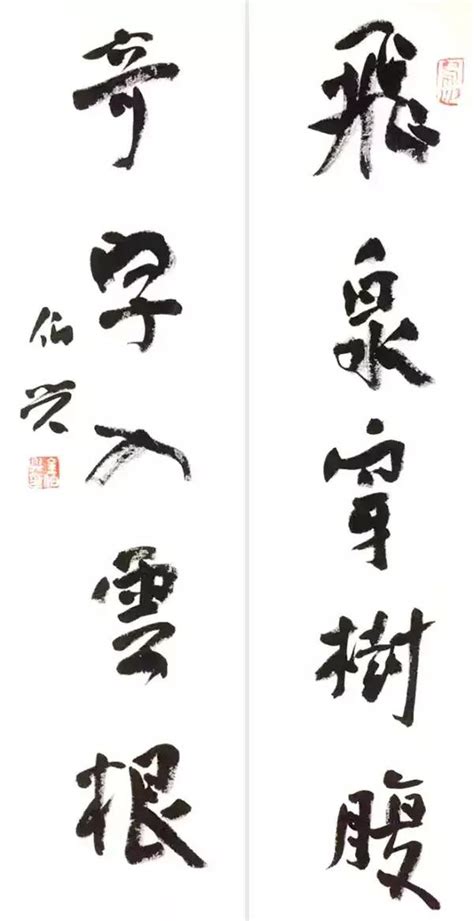 飛泉穿樹腹
奇字入雲根
伯兴